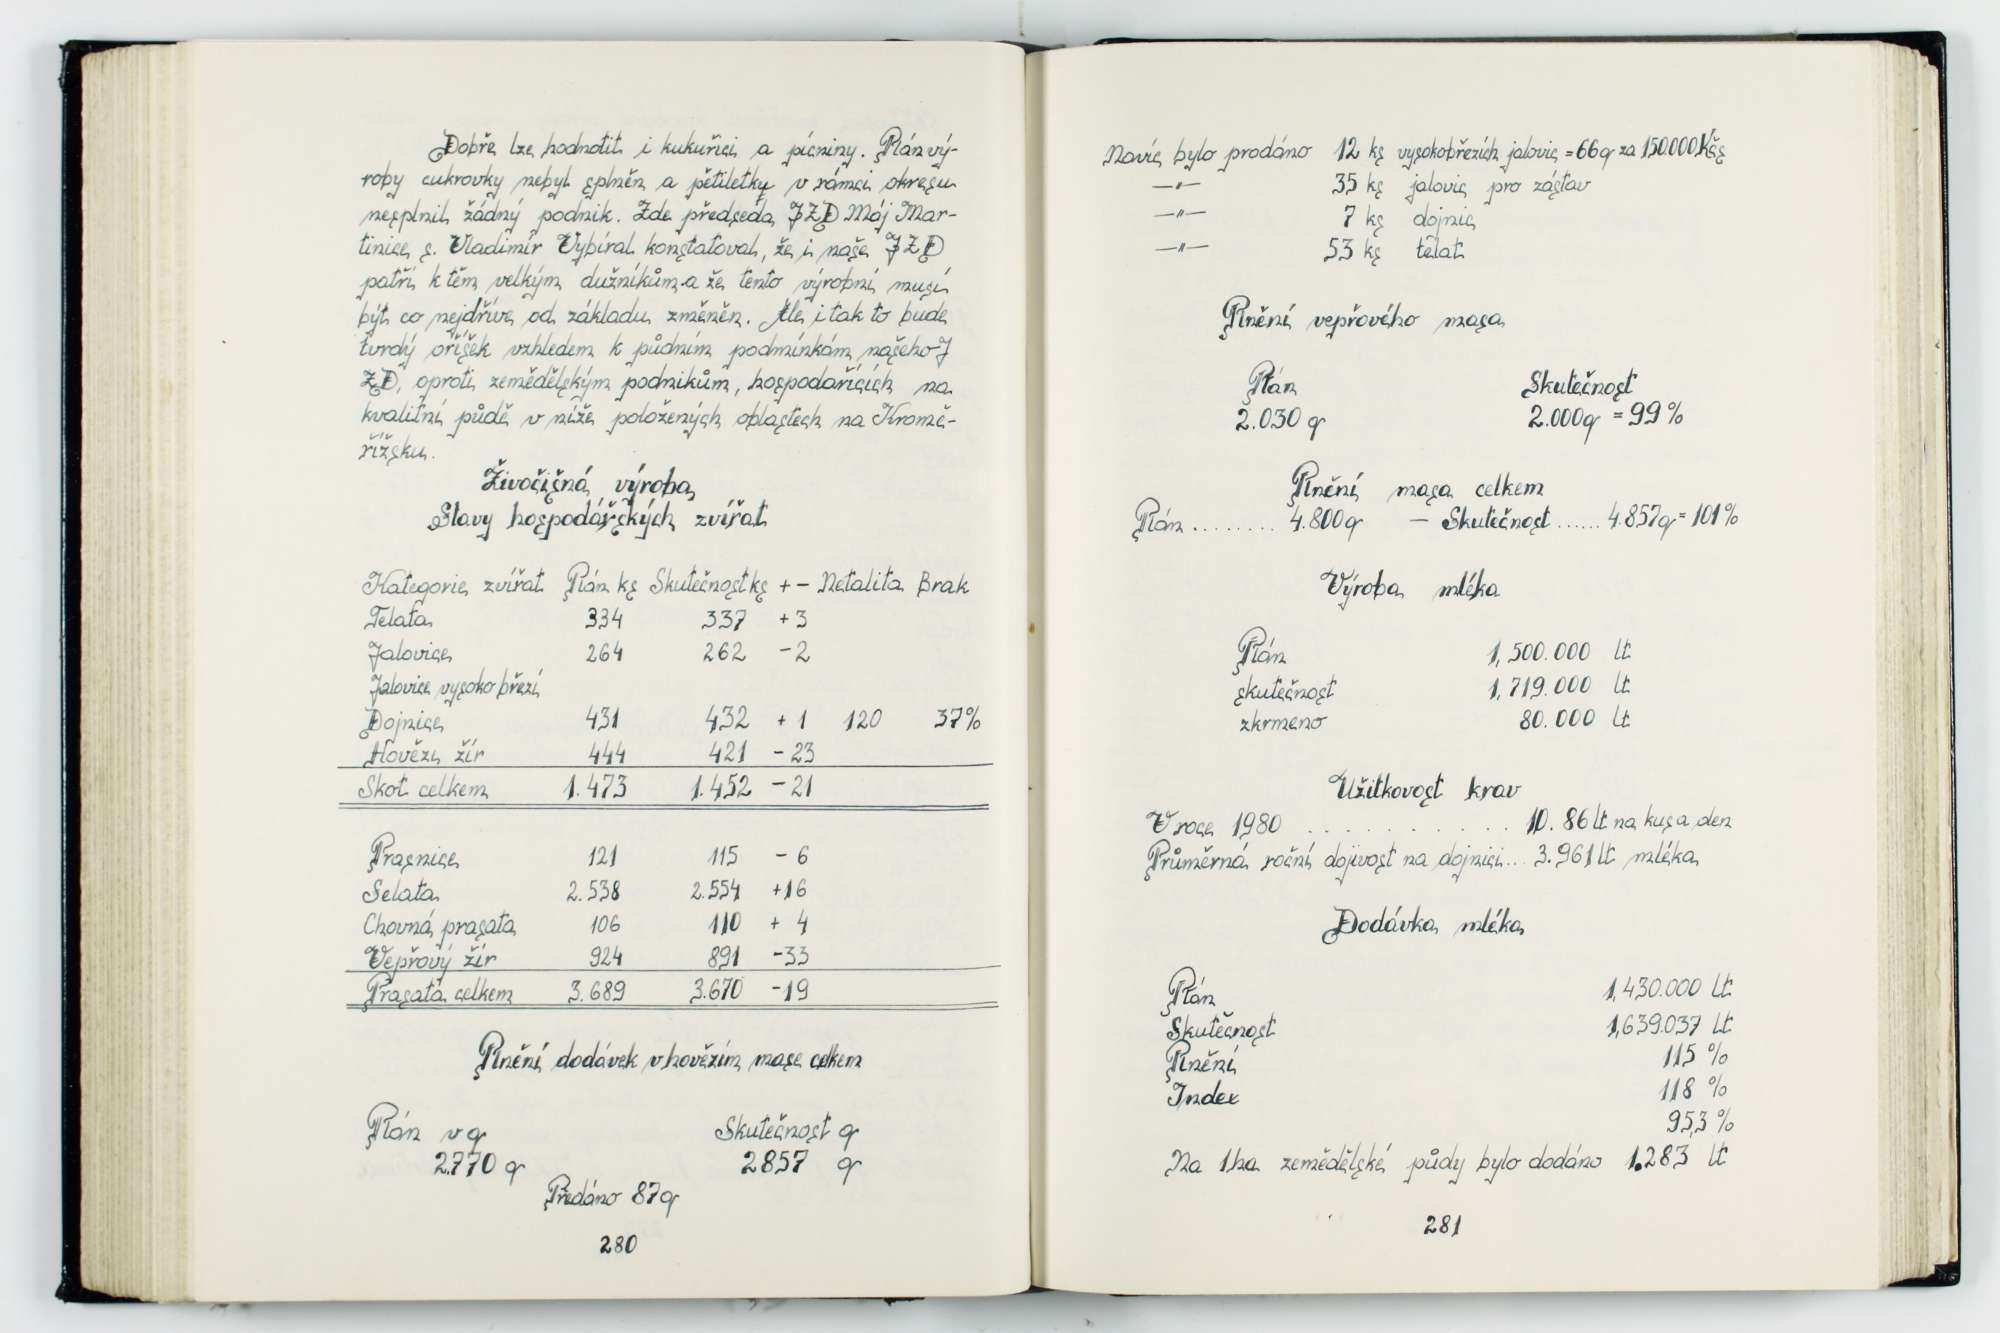 Dobře lze hodnotit i kukuřici a pícniny. Plán vý-
roby cukrovky nebyl splněn a pětiletky v rámci okresu
nesplnil žádný podnik. Zde předseda JZD Máj Mar-
tinice s. Vladimír Vybíral konstatoval, že i naše JZD
patří k těm velkým dužníkům a že tento výrobní musí
být co nejdříve od základu změněn. Ale i tak to bude
tvrdý oříšek vzhledem k půdním podmínkám našeho J
ZD, oproti zemědělským podnikům, hospodařících na
kvalitní půdě v níže položených oblastech na Kromě-
řížsku.
Živočišná výroba
Stavy hospodářských zvířat
Kategorie zvířat Plán ks Skutečnost ks + - Netalita Brak
Telata 334 337 + 3
Jalovice 264 262 - 2
Jalovice vysoko březí
Dojnice 431 432 + 1 120 37%
Hovězí žír 444 421 - 23
Skot celkem 1.473 1.452 - 21
Prasnice 121 115 - 6
Selata 2.538 2.554 +16
Chovná prasata 106 110 + 4
Vepřový žír 924 891 -33
Prasata celkem 3.689 3.670 -19
Plnění dodávek v hovězím mase celkem
Plán v q Skutečnost q
2.770 q 2857 q
Předáno 87q
280
Navíc bylo prodáno 12 ks vysokobřezích jalovic = 66q za 150.000 Kčs
—"— 35 ks jalovic pro zástav
—"— 7 ks dojnic
—"— 53 ks telat
Plnění vepřového masa
Plán Skutečnost
2.030 q 2.000q = 99%
Plnění masa celkem
Plán ........ 4.800q - Skutečnost ...... 4.857q = 101%
Výroba mléka
Plán 1,500.000 lt
skutečnost 1,719.000 lt
zkrmeno 80.000 lt
Užitkovost krav
V roce 1980 .......... 10.86 lt na kus a den
Průměrná roční dojivost na dojnici... 3.961 lt mléka
Dodávka mléka
Plán 1,430.000 lt
Skutečnost 1,639.037 lt
Plnění 115 %
Index 118 %
95,3 %
Na 1 ha zemědělské půdy bylo dodáno 1.283 lt
281